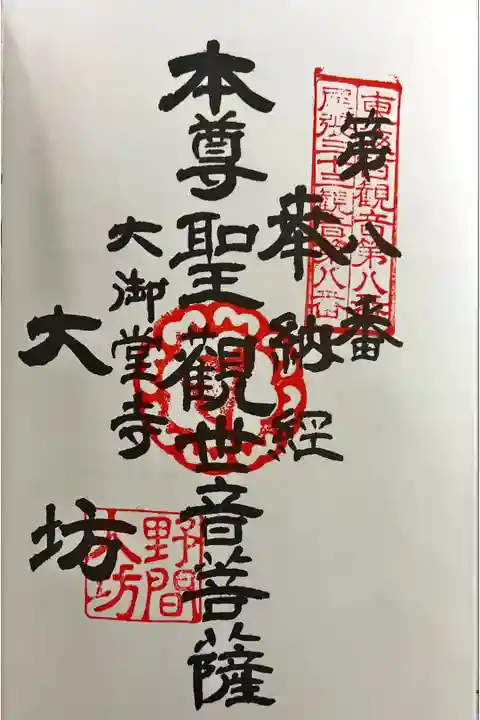 第八番
東海百觀音第八番
尾張三十三觀音第八番
奉納経
本尊聖観世音菩薩
大御堂寺
大坊
野間
大坊